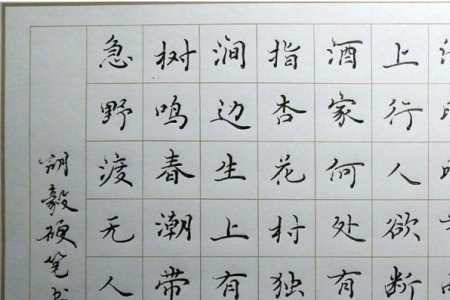 上行人欲断
酒家何处有
指杏花村独
涧边生上有
树鸣春潮带
急野渡无人
毅硬笔书